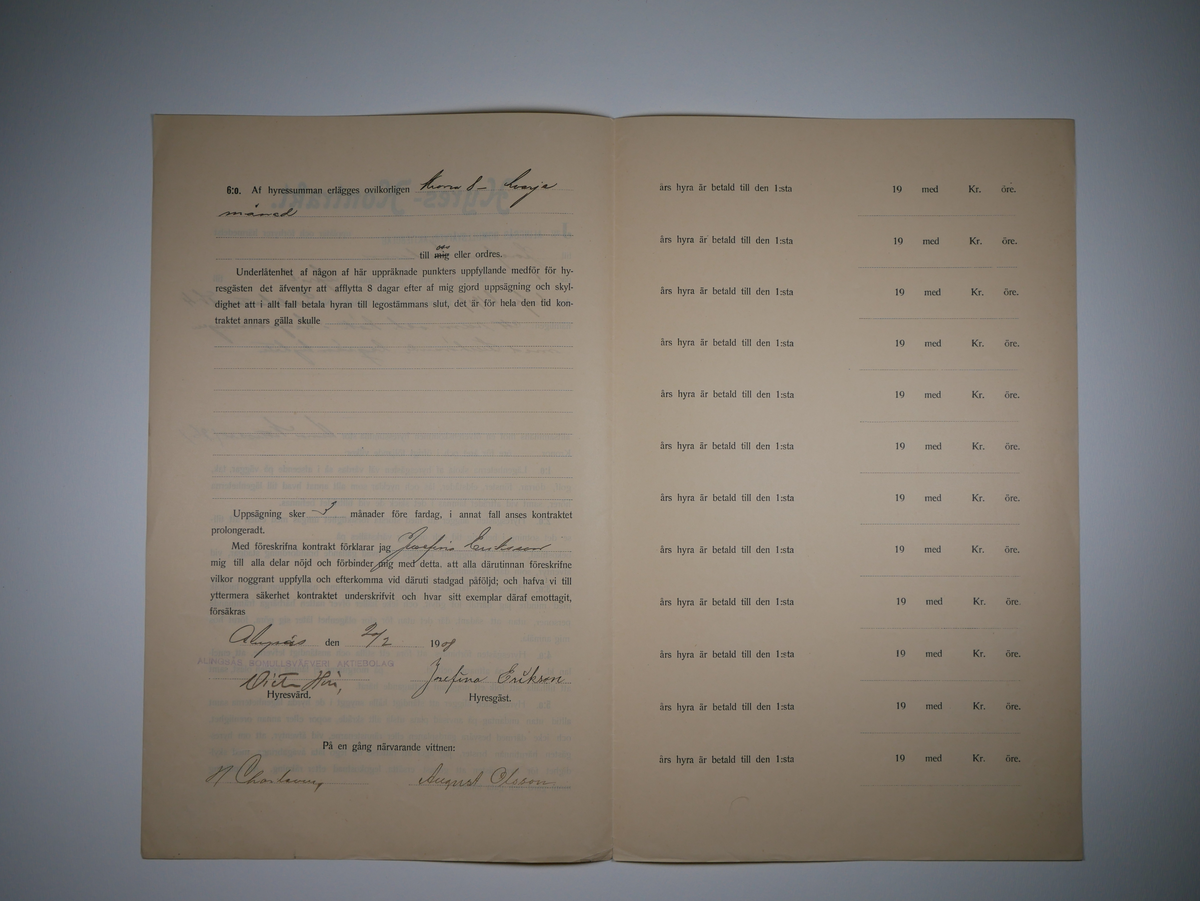 6:o. Af hyressumman erlägges ovilkorligen Kronor 8- hvarje
månad
till mig oss eller ordres.
Underlåtenhet af någon af här uppräknade punkters uppfyllande medför för hy-
resgästen det äfventyr att afflytta 8 dagar efter af mig gjord uppsägning och skyl-
dighet att i allt fall betala hyran till legostämmans slut, det är för hela den tid kon-
traktet annars gälla skulle
Uppsägning sker 3 månader före fardag, i annat fall anses kontraktet
prolongeradt.
Med föreskrifna kontrakt förklarar jag Josefina Eriksson
mig till alla delar nöjd och förbinder mig med detta. att alla därutinnan föreskrifne
vilkor noggrant uppfylla och efterkomma vid däruti stadgad påföljd; och hafva vi till
yttermera säkerhet kontraktet underskrifvit och hvar sitt exemplar däraf emottagit,
försäkras
den 20/2 1908
BOMULLSVÄFVERI AKTEBOLAG
Josefina Erikson
Hyresvärd. Hyresgäst.
På en gång närvarande vittnen:
August Olsson
års hyra är betald till den 1:sta 19 med Kr. öre.
års hyra är betald till den 1:sta 19 med Kr. öre.
års hyra är betald till den 1:sta 19 med Kr. öre.
års hyra är betald till den 1:sta 19 med Kr. öre.
års hyra är betald till den 1:sta 19 med Kr. öre.
års hyra är betald till den 1:sta 19 med Kr. öre.
års hyra är betald till den 1:sta 19 med Kr. öre.
års hyra är betald till den 1:sta 19 med Kr. öre.
års hyra är betald till den 1:sta 19 med Kr. öre.
års hyra är betald till den 1:sta 19 med Kr. öre.
års hyra är betald till den 1:sta 19 med Kr. öre.
års hyra är betald till den 1:sta 19 med Kr. öre.